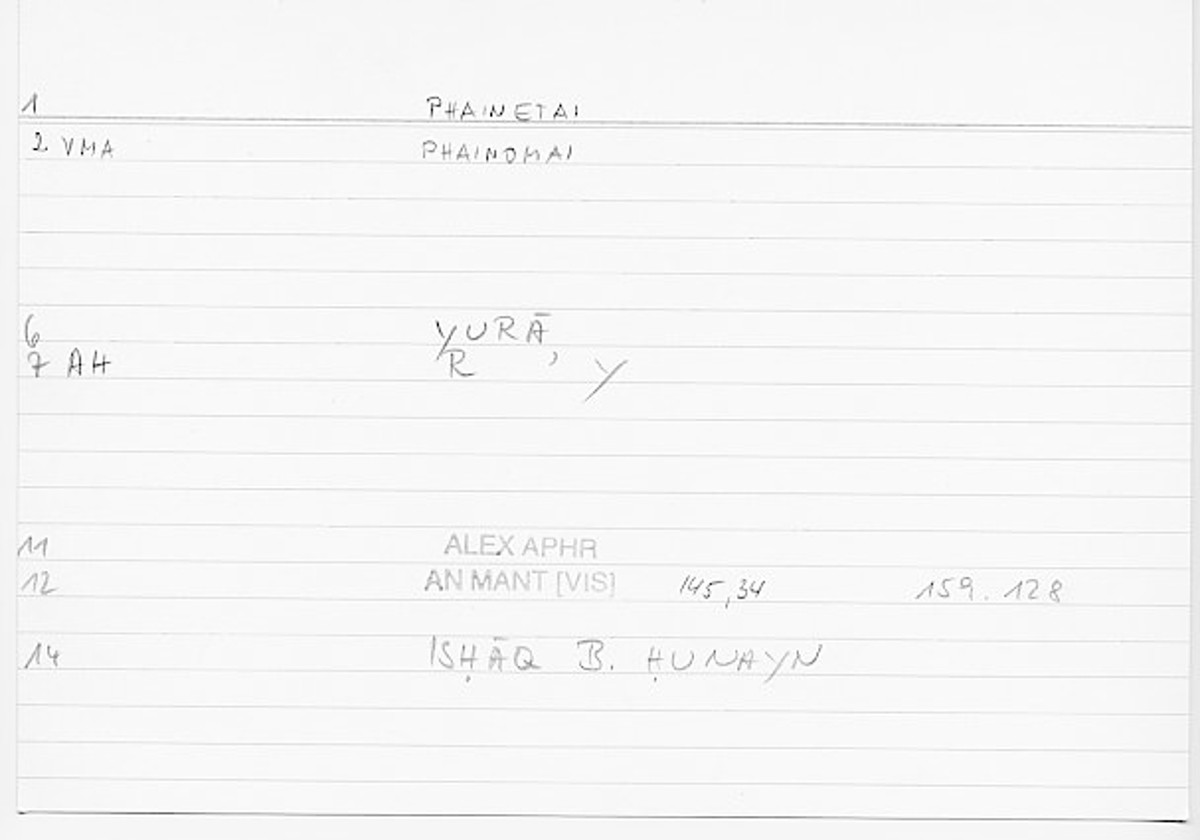 1 PHAINETAI
2 VMA PHAINOMAI
6 YURĀ
7 AH R ʾ Y
11 ALEX APHR
12 AN MANT [VIS] 145,34 159.128
14 ISḤĀQ B. ḤUNAYN